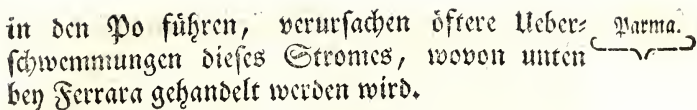 in den Po führen, verursachen öftere Ueber- Parma.
schwemmungen dieses Stromes, wovon unten
bey Ferrara gehandelt werden wird.